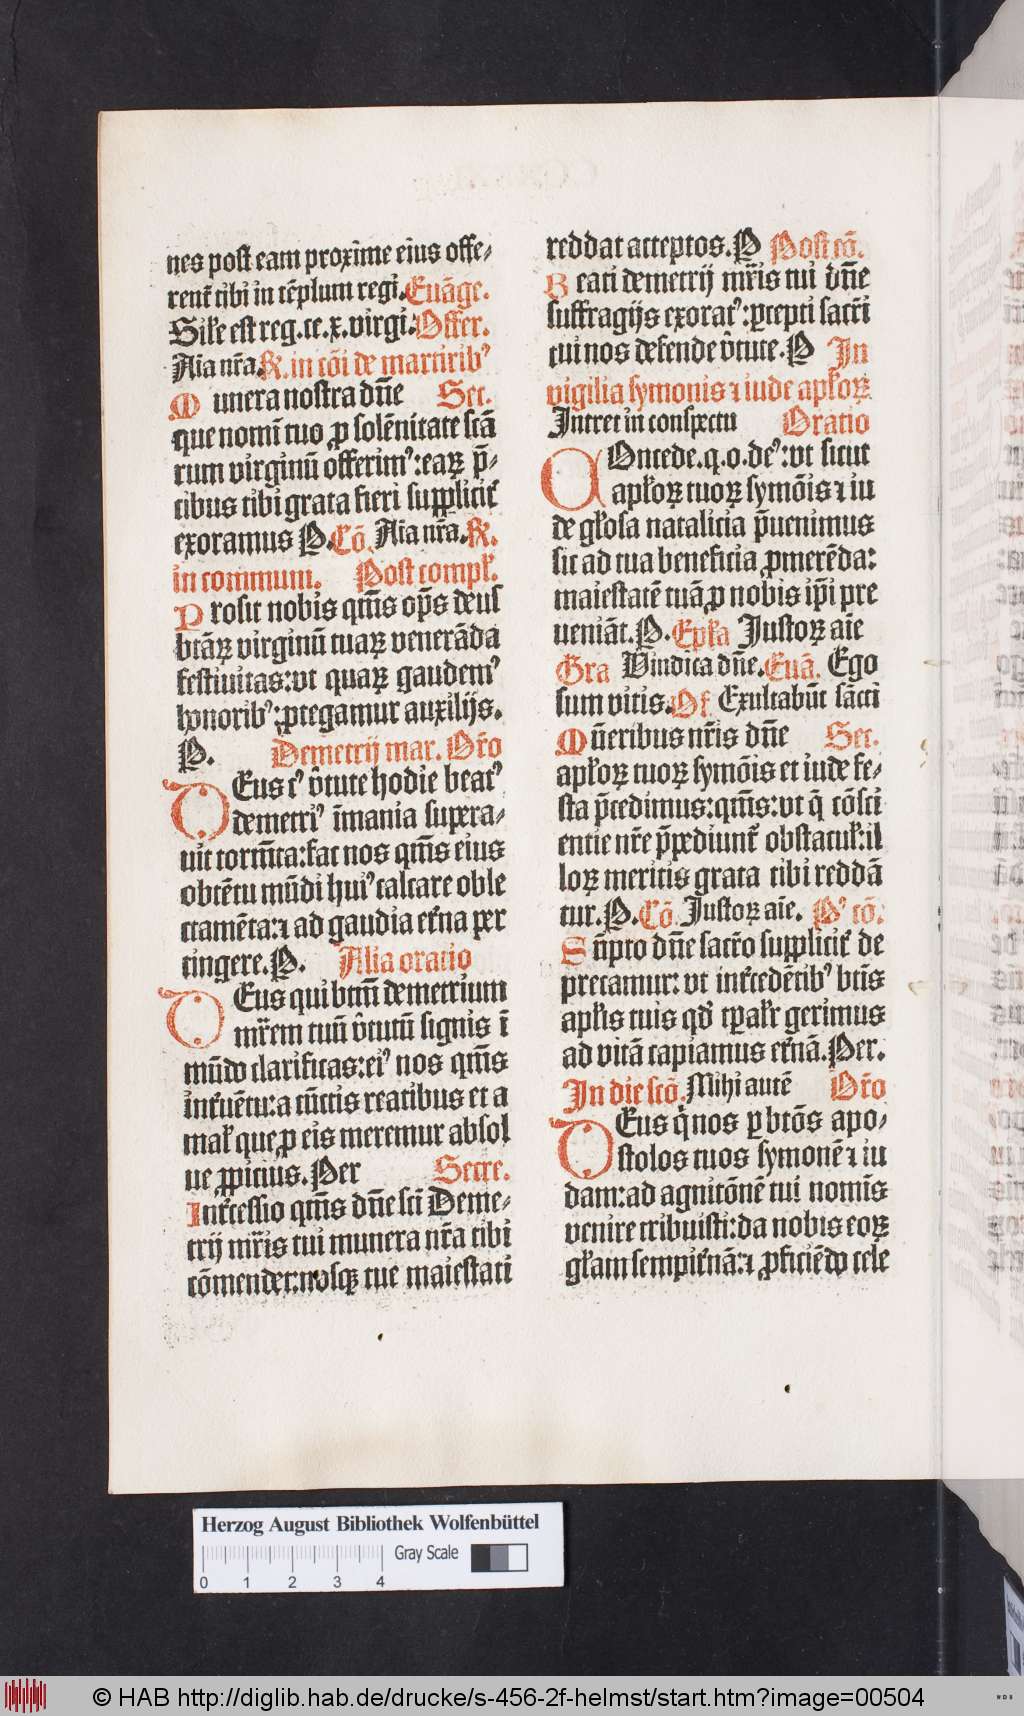 nes post eam proxime eius offe-
rent̄ tibi in tēplum regi. Euāge.
Sil'e est reg. ce. x. virgi. Offer.
Aīa nr̄a. R. in cōi de martirib⁹
Munera nostra dn̄e Sec.
que nomī tuo ꝓ solēnitate scā
rum virginū offerim⁹: eaꝝ p̄-
cibus tibi grata fieri supplicit̄
exoramus P. Cō. Aīa nr̄a. R.
in commum. Post compl'.
Prosit nobis qm̄s op̄s deus
btāꝝ virginū tuaꝝ venerāda
festiuitas: vt quaꝝ gaudem⁹
honorib⁹: ꝓtegamur auxilijs.
P. Demetrij mar. Or̄o
DEus c⁹ v̄tute hodie beat⁹
demetri⁹ īmania supera-
uit torm̄ta: fac nos qm̄s eius
obtētu mūdi hui⁹ calcare oble
ctamēta: ⁊ ad gaudia et̄na per
tingere. P. Alia oratio
DEus qui btm̄ demetrium
mr̄em tuū v̄tutū signis ī
mūdo clarificas: ei⁹ nos qm̄s
int̄uētu: a cūctis reatibus et a
mal' que ꝓ eis meremur absol
ue ꝓpitius. Per Secre.
Int̄cessio qm̄s dn̄e sc̄i Deme-
trij mr̄is tui munera nr̄a tibi
cōmendet: nosqꝫ tue maiestati
reddat acceptos. P Post cō.
Beati demetrij mr̄is tui dn̄e
suffragijs exorat⁹: ꝑcepti sacr̄i
tui nos defende v̄tute. P In
vigilia symonis ⁊ iude apl'oꝝ
Intret in conspectu Oratio
COncede. q. o. de⁹: vt sicut
apl'oꝝ tuoꝝ symōis ⁊ iu
de gl'osa natalicia p̄uenimus
sic ad tua beneficia ꝓmerēda:
maiestatē tuā ꝓ nobis ip̄i pre
ueniāt. P. Epl'a Justoꝝ aīe
Gra Vindica dn̄e. Euā. Ego
sum vitis. Of Exultabūt sācti
Mūeribus nr̄is dn̄e Sec.
apl'oꝝ tuoꝝ symōis et iude fe-
sta p̄cedimus: qm̄s: vt q̄ cōsci
entie nr̄e p̄pediunt̄ obstacul': il
loꝝ meritis grata tibi reddā
tur. P. Cō. Justoꝝ aīe. P⁹ cō.
Sūpto dn̄e sacr̄o supplicit̄ de
precamur: vt int̄cedētib⁹ btīs
apl'is tuis qd̄ tꝑal'r gerimus
ad vitā capiamus et̄nā. Per.
In die scō. Mihi autē Or̄o
DEus q̄ nos ꝑ btōs apo-
stolos tuos symonē ⁊ iu
dam: ad agnitōnē tui nomīs
venire tribuisti: da nobis eoꝝ
gl'am sempit̄nā: ⁊ ꝓficiēdo cele
Herzog August Bibliothek Wolfenbüttel
Gray Scale
0 1 2 3 4
© HAB http://diglib.hab.de/drucke/s-456-2f-helmst/start.htm?image=00504